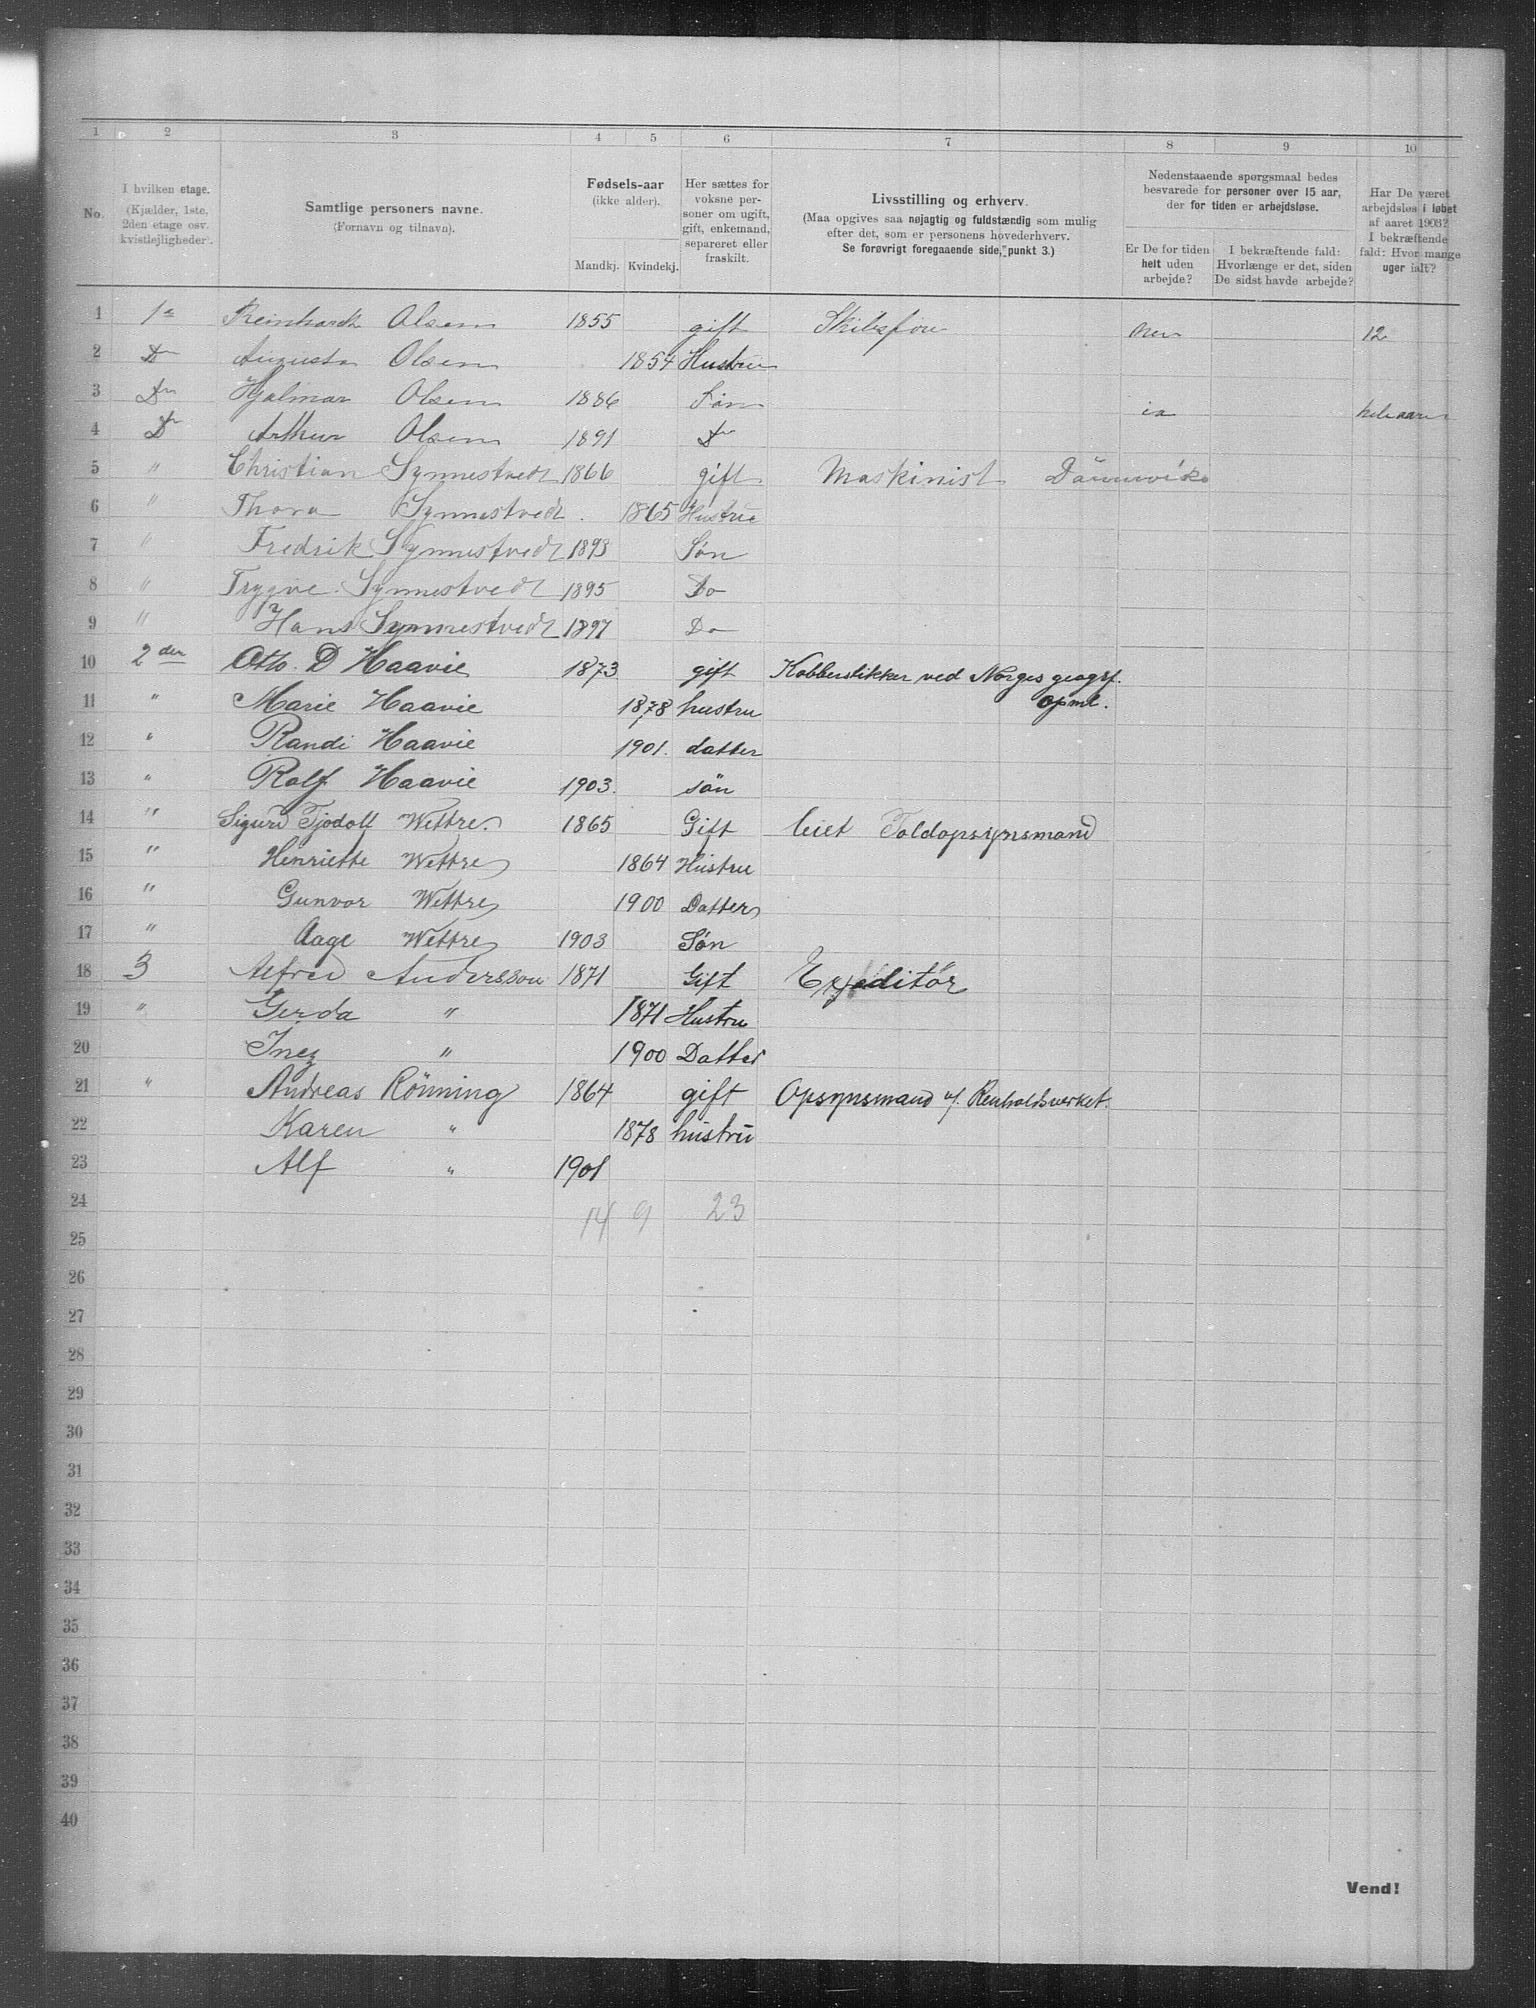 1 2 3 4 5 6 7 8 9 10
No. I hvilken etage. (Kjælder, 1ste, 2den etage osv. kvistlejligheder). Samtlige personers navne. (Fornavn og tilnavn). Fødsels-aar (ikke alder). Mandkj. Kvindekj. Her sættes for voksne personer om ugift, gift, enkemand, separeret eller fraskilt. Livsstilling og erhverv. (Maa opgives saa nøjagtig og fuldstændig som mulig efter det, som er personens hovederhverv. Se forøvrigt foregaaende side, punkt 3.) Nedenstaaende spørgsmaal bedes besvarede for personer over 15 aar, der for tiden er arbejdsløse. Er De for tiden helt uden arbejde? I bekræftende fald: Hvorlænge er det, siden De sidst havde arbejde? Har De været arbejdsløs i løbet af aaret 1903? I bekræftende fald: Hvor mange uger ialt?
1 1ste Reinhardt Olsen 1855 gift nei 12
2 Do Augusta Olsen 1854 Hustru
3 Do Hjalmar Olsen 1886 Søn ja hele aaret
4 Do Arthur Olsen 1891 Do
5 " Christian Synnestvedt 1866 gift Maskinist
6 " Thora Synnestvedt. 1865 Hustru
7 " Fredrik Synnestvedt 1893 Søn
8 " Trygve Synnestvedt 1895 Do
9 " Hans Synnestvedt 1897 Do
10 2den Otto. D Haavie 1873 gift Kobberstikker ved Norges geogrf.
11 " Marie Haavie 1878 hustru opml.
12 " Randi Haavie 1901. datter
13 " Rolf Haavie 1903. søn
14 " Sigurd Tjodolf Wettre. 1865 Gift leiet Toldopsynsmand
15 " Henriette Wettre 1864 Hustru
16 " Gunvor Wettre 1900 Datter
17 " Aage Wettre 1903 Søn
18 3 Alfred Andersson 1871 Gift Expeditør
19 " Gerda " 1871 Hustru
20 Inez " 1900 Datter
21 " Andreas Rönning 1864 gift Opsynsmand v/. Renholdsverket.
22 Karen " 1878 hustru
23 Alf " 1901
24 14 9 23
25
26
27
28
29
30
31
32
33
34
35
36
37
38
39
40
Vend!